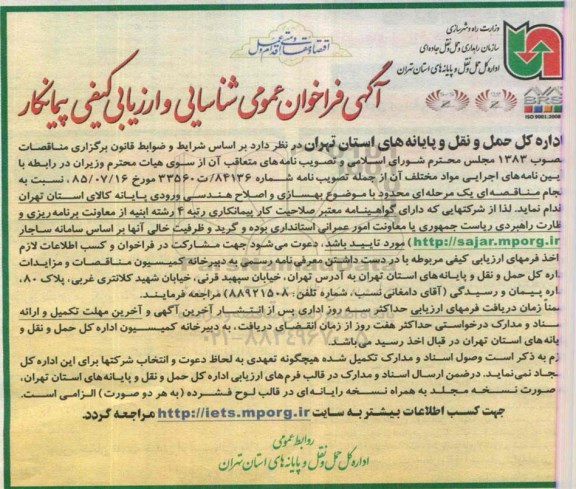 وزارت راه و شهرسازی
سازمان راهداری و حمل و نقل جاده‌ای
اداره کل حمل و نقل و پایانه های استان تهران
BRS
ISO 9001:2008
آگهی فراخوان عمومی شناسایی و ارزیابی کیفی پیمانکار
داره کل حمل و نقل و پایانه های استان تهران در نظر دارد بر اساس شرایط و ضوابط قانون برگزاری مناقصات
صوب ۱۳۸۳ مجلس محترم شورای اسلامی و تصویب نامه های متعاقب آن از سوی هیات محترم وزیران در رابطه با
یین نامه های اجرایی مواد مختلف آن از جمله تصویب نامه شماره ۸۴۱۳۶/ت۳۳۵۶۰ مورخ ۸۵/۰۷/۱۶، نسبت به
جام مناقصه ای یک مرحله ای محدود با موضوع بهسازی و اصلاح هندسی ورودی پایانه کالای استان تهران
قدام نماید. لذا از شرکتهایی که دارای گواهینامه معتبر صلاحیت کار پیمانکاری رتبه ۴ رشته ابنیه از معاونت برنامه ریزی و
ظارت راهبردی ریاست جمهوری یا معاونت امور عمرانی استانداری بوده و گرید و ظرفیت خالی آنها بر اساس سامانه ساجار
(http://sajar.mporg.ir) مورد تایید باشد، دعوت می شود جهت مشارکت در فراخوان و کسب اطلاعات لازم
اخذ فرمهای ارزیابی کیفی مربوطه با در دست داشتن معرفی نامه رسمی به دبیرخانه کمیسیون مناقصات و مزایدات
اره کل حمل و نقل و پایانه های استان تهران به آدرس تهران، خیابان سپهبد قرنی، خیابان شهید کلانتری غربی، پلاک ۸۰،
اره پیمان و رسیدگی (آقای دامغانی نسب، شماره تلفن: ۸۸۹۲۱۵۰۸) مراجعه فرمایند.
منا زمان دریافت فرمهای ارزیابی حداکثر سه روز اداری پس از انتشار آخرین آگهی و آخرین مهلت تکمیل و ارائه
سناد و مدارک درخواستی حداکثر هفت روز از زمان انقضای دریافت، به دبیرخانه کمیسیون اداره کل حمل و نقل و
پانه های استان تهران در قبال اخذ رسید می باشد.
زم به ذکر است وصول اسناد و مدارک تکمیل شده هیچگونه تعهدی به لحاظ دعوت و انتخاب شرکتها برای این اداره کل
یجاد نمی نماید. درضمن ارسال اسناد و مدارک در قالب فرم های ارزیابی اداره کل حمل و نقل و پایانه های استان تهران،
صورت نسخه مجلد به همراه نسخه رایانه ای در قالب لوح فشرده (به هر دو صورت) الزامی است.
جهت کسب اطلاعات بیشتر به سایت http://iets.mporg.ir مراجعه گردد.
روابط عمومی
اداره کل حمل و نقل و پایانه های استان تهران